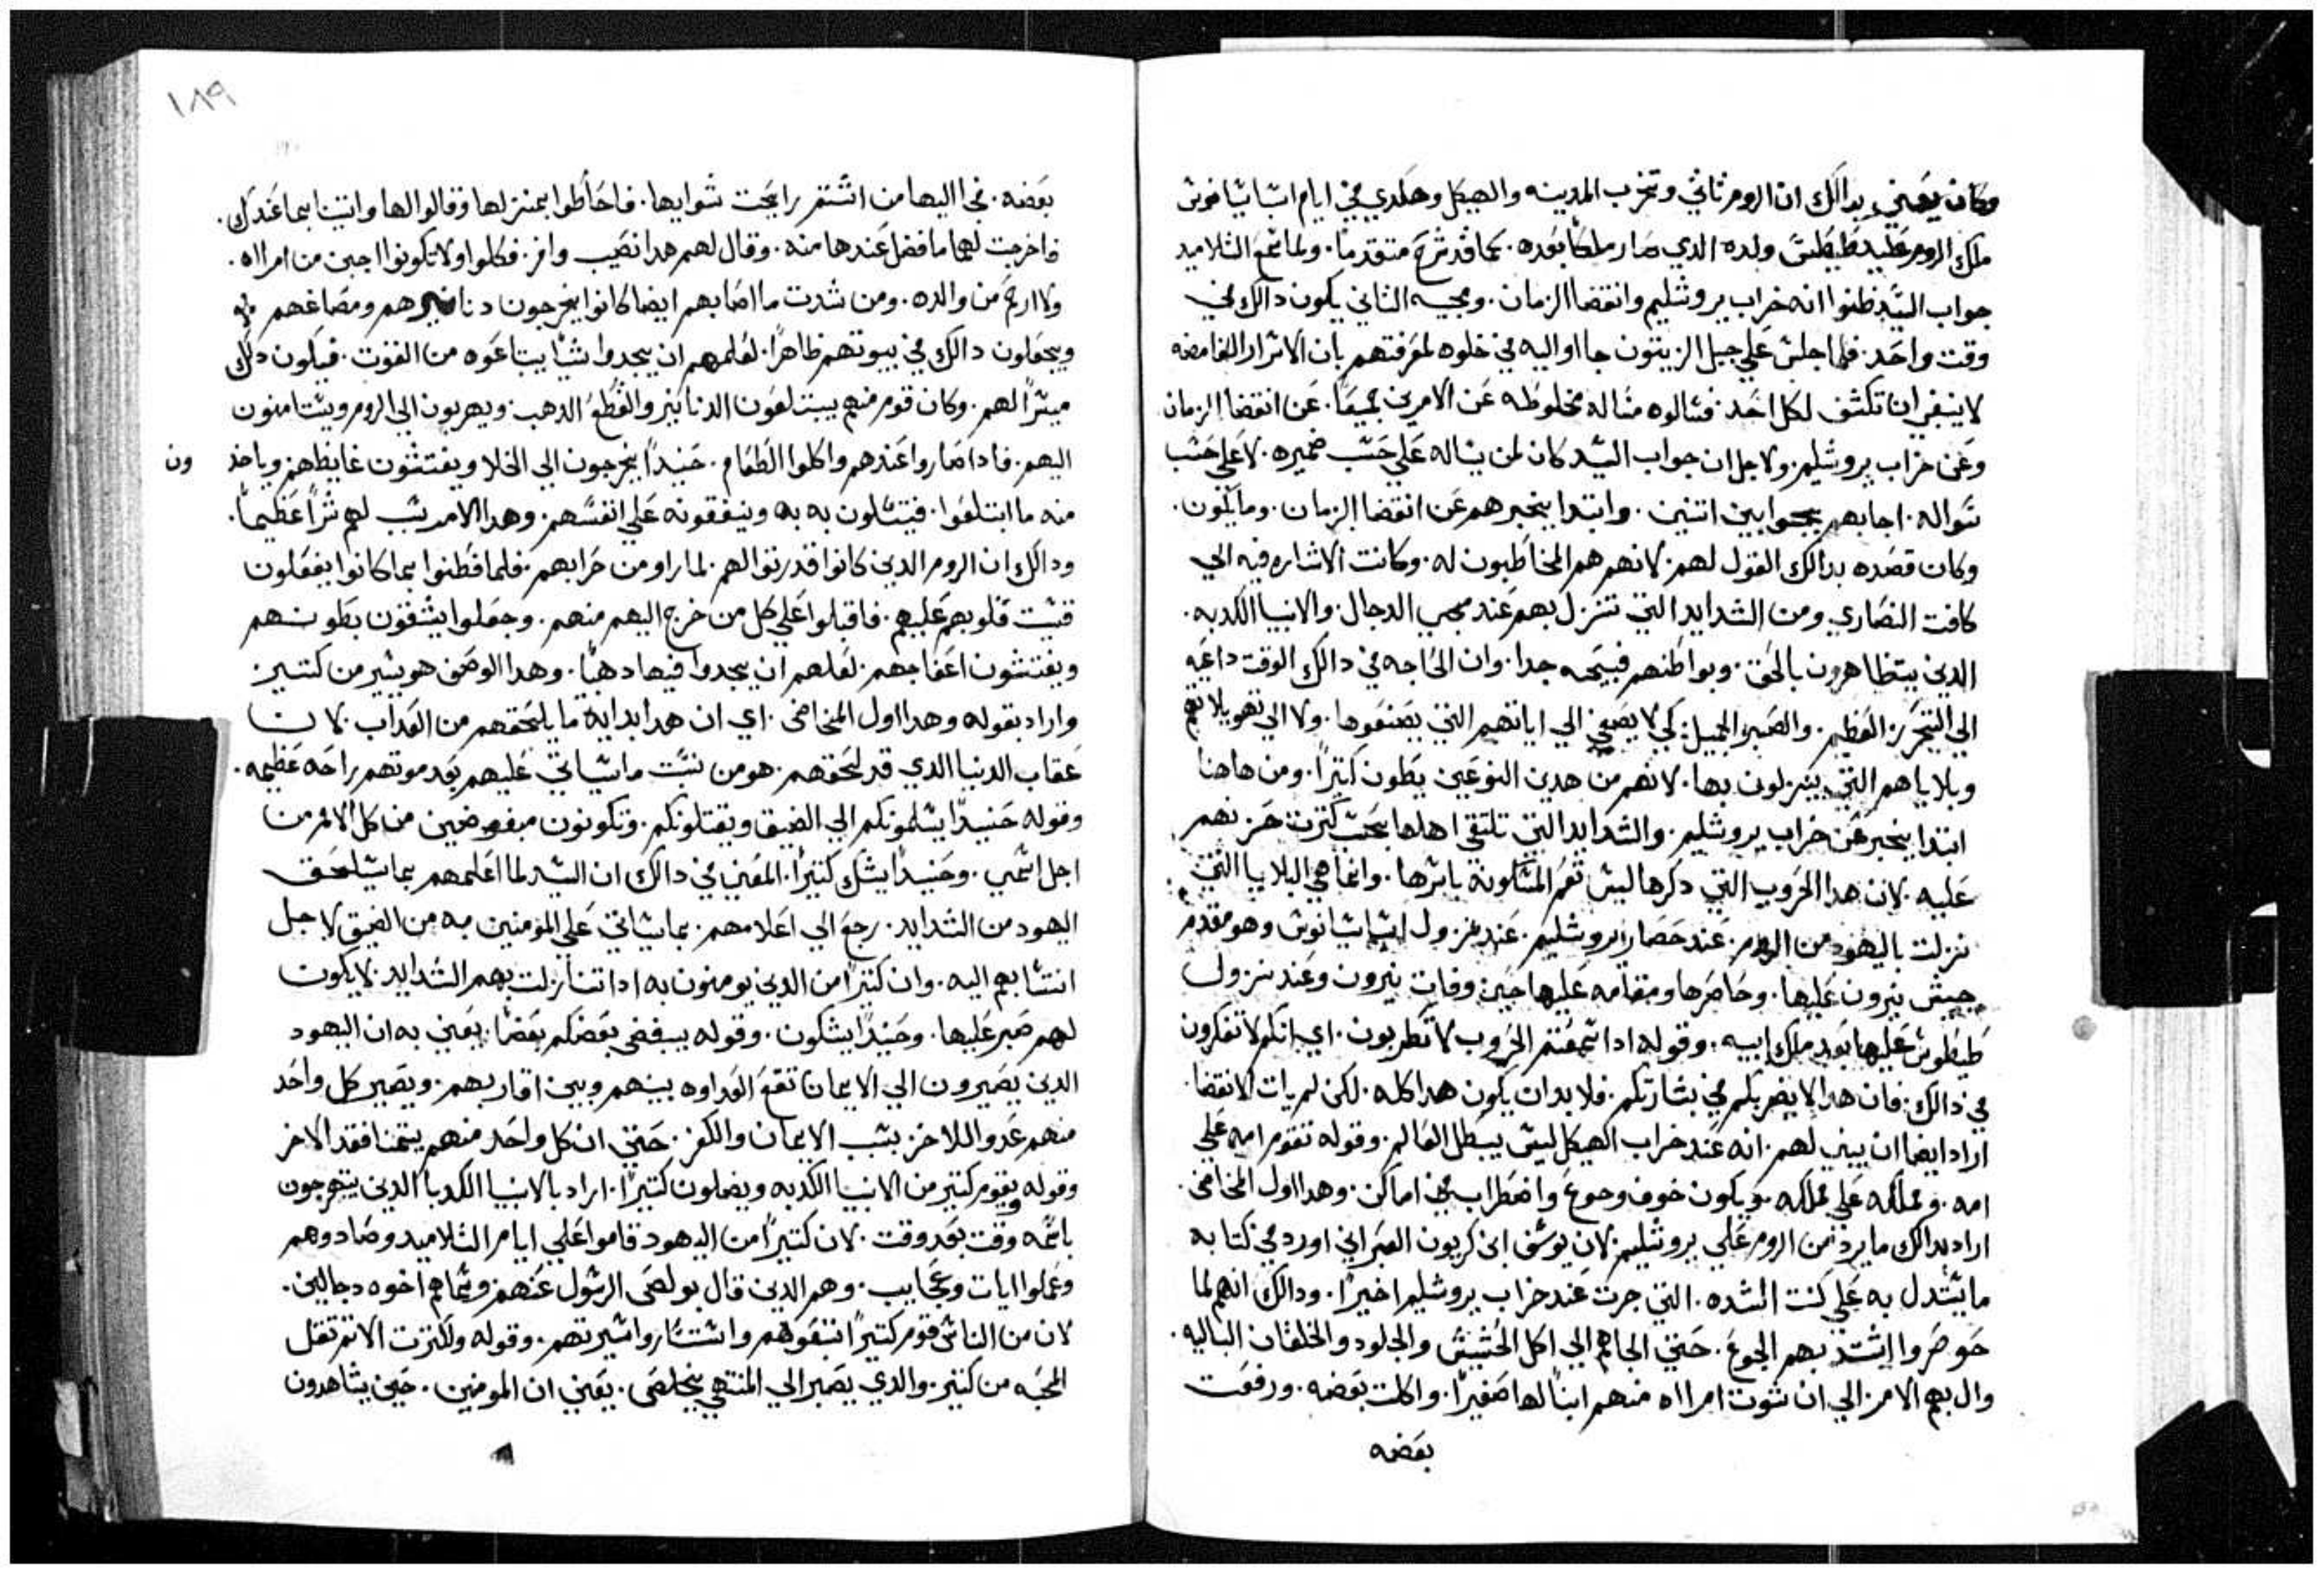 وكان يعني بدالك ان الروم تاتي وتخرب المدينه والهيكل وهكدي في ايام اسباسيانوس
ملك الروم علي يد طيطس ولده الدي صار ملكا بعده. كما قد شرح متقدما. ولما سمع التلاميد
جواب السيد ظنوا انه خراب يروشليم وانقضا الزمان. ومجيه التاني يكون دالك في
وقت واحد. فلما جلس علي جبل الزيتون جااوا اليه في خلوه لمعرفتهم بان الاسرار الغامضه
لا ينبغي ان تكشف لكل احد. فسالوه مساله مخلوطه عن الامرين جميعا. عن انقضا الزمان
وعن خراب يروشليم. ولاجل ان جواب السيد كان لمن يساله علي حسب ضميره. لا علي حسب
سواله. اجابهم بجوابين اتنين. وابتدا يخبرهم عن انقضا الزمان. وما يكون.
وكان قصده بدالك القول لهم. لانهم هم المخاطبون له. وكانت الاشاره فيه الي
كافت النصاري ومن الشدايد التي تنزل بهم عند مجي الدجال. والانبيا الكدبه.
الدين يتظاهرون بالحق. وبواطنهم قبيحه جدا. وان الحاجه في دالك الوقت داعيه
الي التحرز العظيم. والصبر الجميل. كي لا يصغي الي اياتهم التي يصنعوها. ولا الي تهويلاتهم
وبلاياهم التي ينزلون بها. لانهم من هدين النوعين يظون كتيرا. ومن هاهنا
ابتدا يخبر عن خراب يروشليم. والشدايد التي تلتقي اهلها بحسب كترت حزنهم
عليه. لان هدا الحروب التي دكرها ليس تعم المسكونه باسرها. وانما هي البلايا التي
نزلت باليهود من الروم. عند حصار يروشليم. عند نزول اسباسيانوس وهو مقدم
جيش نيرون عليها. وحاصرها ومقامه عليها حين وفات نيرون وعند نزول
طيطوس عليها بعد ملك ابيه. وقوله ادا سمعتم الحروب لا تضطربون. اي انكم لا تفكرون
في دالك. فان هدا لا يضر بكم في بشارتكم. فلا بد ان يكون هدا كله. لكن لم يات الانقضا
اراد ايضا ان يبين لهم. انه عند خراب الهيكل ليس يبطل العالم. وقوله تقوم امه علي
امه. ومملكه علي مملكه ويكون خوف وجوع واضطراب في اماكن. وهدا اول المخاض.
اراد بدالك ما يرد من الروم علي يروشليم. لان يوسف ابن كريون العبراني اورد في كتابه
ما يستدل به علي كنت الشده. التي جرت عند خراب يروشليم اخيرا. ودالك انهم لما
حوصروا اشتد بهم الجوع. حتي الجاهم الي اكل الحشيش والجلود والخلقان الباليه.
وال بهم الامر. الي ان شوت امراه منهم ابنا لها صغيرا. واكلت بعضه. ورفعت
بعضه
١٨٩
بعضه. فجا اليها من اشتم رايحت شوايها. فاحاطوا بمنزلها وقالوا لها واتينا بما عندك.
فاخرجت لهم ما فضل عندها منه. وقال لهم هدا نصيب وافر. فكلوا ولا تكونوا اجبن من امراه.
ولا ارحم من والده. ومن شدت ما اصابهم ايضا كانوا يخرجون دنانيرهم ومصاغهم
ويجعلون دالك في بيوتهم ظاهرا. لعلهم ان يجدوا شيا يبتاعوه من القوت. فيكون دلك
ميسرا لهم. وكان قوم منهم يبتلعون الدنانير والقطع الدهب. ويهربون الي الروم ويستامنون
اليهم. فادا صاروا عندهم واكلوا الطعام. حنيدا يخرجون الي الخلا ويفتشون غايظهم وياخد ون
منه ما ابتلعوا. فيتسلون به وينفقونه علي انفسهم. وهدا الامر سبب لهم شرا عظيما.
ودالك ان الروم الدين كانوا قد رتوا لهم. لما راو من خرابهم. فلما فطنوا بما كانوا يفعلون
قسيت قلوبهم عليهم. فاقبلوا علي كل من خرج اليهم منهم. وجعلوا يشقون بطونهم
ويفتشون اعفاجهم. لعلهم ان يجدوا فيها دهبا. وهدا الوصف هو يسير من كتير
واراد بقوله وهدا اول المخاض. اي ان هدا بداية ما يلحقهم من العداب. لان
عقاب الدنيا الدي قد لحقهم. هو من نسبت ما سياتي عليهم بعد موتهم راحه عظيمه.
وقوله حنيدا يسلمونكم الي الضيق ويقتلونكم. وتكونون مبغوضين من كل الامم من
اجل اسمي. وحنيدا يشك كتيرا. المعني في دالك ان السيد لما اعلمهم بما سيلحق
اليهود من الشدايد. رجع الي اعلامهم. بما سياتي علي المومنين به من الضيق لاجل
انتسابهم اليه. وان كتيرا من الدين يومنون به ادا تنازلت بهم الشدايد. لا يكون
لهم صبر عليها. وحنيدا يشكون. وقوله يبغض بعضكم بعضا. يعني به ان اليهود
الدين يصيرون الي الايمان تقع العداوه بينهم وبين اقاربهم. ويصير كل واحد
منهم عدوا للاخر. بسبب الايمان والكفر. حتي ان كل واحد منهم يتمنا فقد الاخر
وقوله ويقوم كتير من الانبيا الكدبه ويضلون كتيرا. اراد بالانبيا الكدبا الدين يتهرجون
باسمه وقت بعد وقت. لان كتيرا من اليهود قاموا علي ايام التلاميد وضادوهم
وعملوا ايات وعجايب. وهم الدين قال بولص الرسول عنهم. وسماهم اخوه دجالين.
لان من الناس قوم كتيرا اتبعوهم واستساروا سيرتهم. وقوله ولكترت الاتم تقل
المحبه من كتير. والدي يصبر الي المنتهي يخلص. يعني ان المومنين. حين يشاهدون